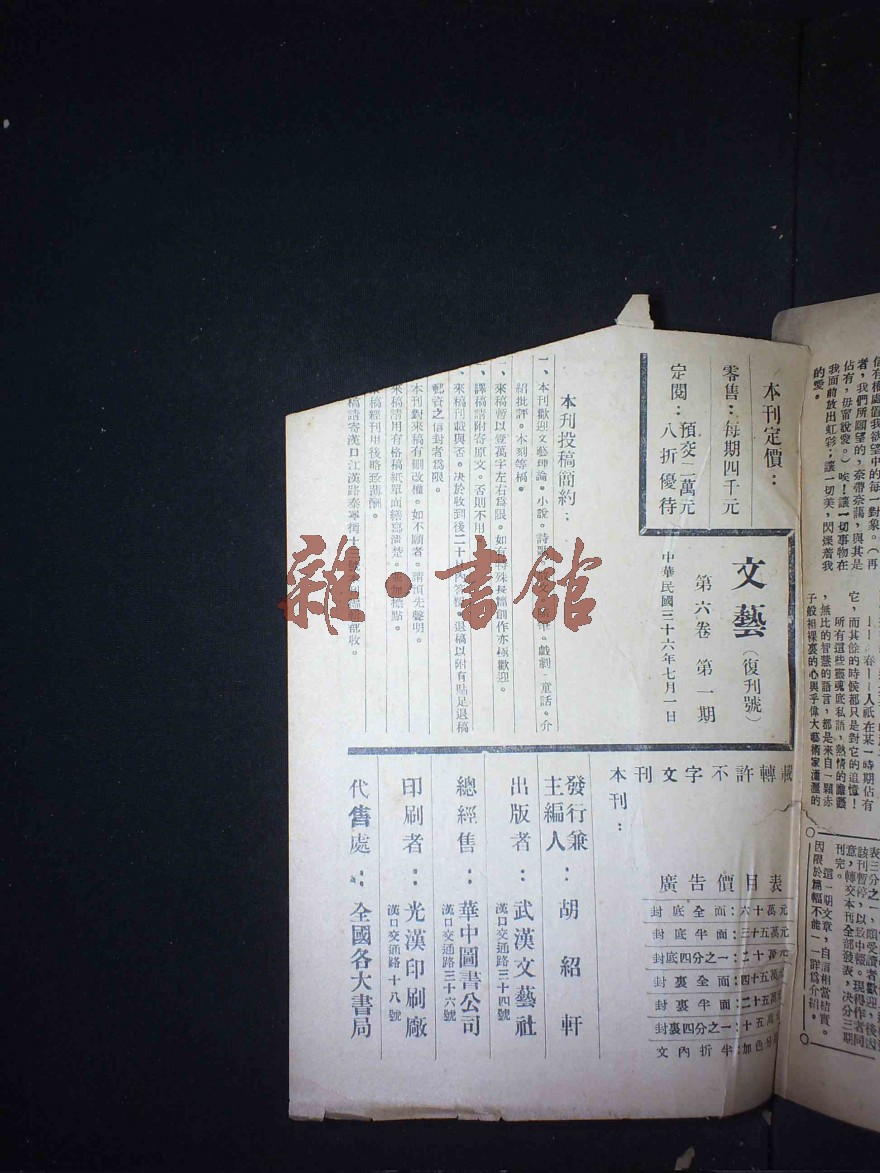 本刊定價：
零售：每期四千元
定閱：預交二萬元
八折優待
文藝（復刊號）
第六卷 第一期
中華民國三十六年七月一日
本刊投稿簡約：
一、本刊歡迎文藝理論。小說。詩歌
戲劇。童話。介
紹批評。木刻等稿。
、來稿暫以壹萬字左右為限。如有特殊長篇創作亦極歡迎。
、譯稿請附寄原文。否則不用
、來稿刊載與否。決於收到後二十
內答覆。退稿以附有貼足退稿
郵資之信封者為限。
本刊對來稿有刪改權。如不願者。請預先聲明。
來稿請用有格稿紙單面繕寫清楚。並加標點。
來稿經刊用後略致薄酬。
稿請寄漢口江漢路泰寧街十
部收。
本刊文字不許轉載
本刊：
發行兼
主編人：胡紹軒
出版者：武漢文藝社
漢口交通路三十四號
總經售：華中圖書公司
漢口交通路三十六號
印刷者：光漢印刷廠
漢口交通路十八號
代售處：全國各大書局
廣告價目表
封底全面：六十萬元
封底半面：三十五萬元
封底四分之一：二十萬元
封裏全面：四十五萬元
封裏半面：二十五萬
封裏四分之一：十五萬
文內折半：加色
信有權處值我欲望中的每一對象。（再
者，我們所願望的，奈帶奈藹，與其是
佔有，毋甯說愛。）唉！讓一切事物在
我面前放出虹彩；讓一切美，閃爍着我
的愛。
春——人祇在某一時期佔有
它，而其餘的時候都只是對它的追憶！
所有這些靈魂底私語，熱情的
，無比的智慧的語言，都是來自一顆赤
子般袒裸裏的心與乎偉大藝術家瀟灑的
表三分之一，頗受讀者歡迎，後因
該刊暫停，以致中輟。現得作者同
意，轉交本刊全部發表，決分三期
刊完。
這一期文章，自信相當結實。
因限於篇幅不能一一詳為介紹。
雜·書館